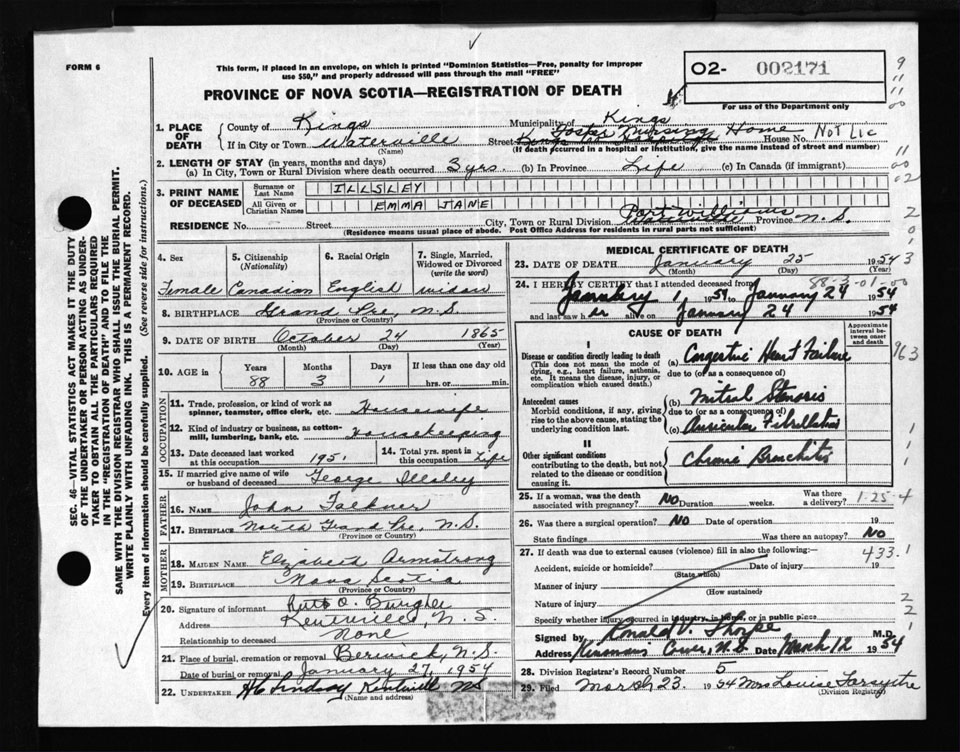 FORM 6
This form, if placed in an envelope, on which is printed "Dominion Statistics—Free, penalty for improper
use $50," and properly addressed will pass through the mail "FREE"
PROVINCE OF NOVA SCOTIA—REGISTRATION OF DEATH
O2- 002171
For use of the Department only
1. PLACE OF DEATH
County of Kings Municipality of Kings
If in City or Town Waterville (Name) Street Foster Nursing Home House No. Not Lic
(If death occurred in a hospital or institution, give the name instead of street and number)
2. LENGTH OF STAY (in years, months and days)
(a) In City, Town or Rural Division where death occurred 3 yrs. (b) In Province Life (c) In Canada (if immigrant)
3. PRINT NAME OF DECEASED
Surname or Last Name ILLSLEY
All Given or Christian Names EMMA JANE
RESIDENCE No. Street City, Town or Rural Division Port Williams Province N.S.
(Residence means usual place of abode. Post Office Address for residents in rural parts not sufficient)
4. Sex Female
5. Citizenship (Nationality) Canadian
6. Racial Origin English
7. Single, Married, Widowed or Divorced (write the word) widow
8. BIRTHPLACE Grand Pre, N.S.
(Province or Country)
9. DATE OF BIRTH October 24 1865
(Month) (Day) (Year)
10. AGE in Years 88 Months 3 Days 1 If less than one day old
hrs. or min.
OCCUPATION
11. Trade, profession, or kind of work as spinner, teamster, office clerk, etc. Housewife
12. Kind of industry or business, as cotton-mill, lumbering, bank, etc. Housekeeping
13. Date deceased last worked at this occupation 1951
14. Total yrs. spent in this occupation Life
15. If married give name of wife or husband of deceased George Illsley
FATHER
16. Name John Falkner
17. Birthplace North Grand Pre, N.S.
(Province or Country)
MOTHER
18. MAIDEN NAME Elizabeth Armstrong
19. BIRTHPLACE Nova Scotia
(Province or Country)
20. Signature of informant Ruth O.
Address Kentville, N.S.
Relationship to deceased None
21. Place of burial, cremation or removal Berwick, N.S.
Date of burial or removal January 27, 1954
22. UNDERTAKER Lindsay Kentville NS
(Name and address)
MEDICAL CERTIFICATE OF DEATH
23. DATE OF DEATH January 25 1954
(Month) (Day) (Year)
24. I HEREBY CERTIFY that I attended deceased from
January 1 1951 to January 24 1954
and last saw her alive on January 24 1954
CAUSE OF DEATH
Approximate interval between onset and death
I
Disease or condition directly leading to death (a) Congestive Heart Failure
(This does not mean the mode of dying, e.g., heart failure, asthenia, etc. It means the disease, injury, or complication which caused death.)
due to (or as a consequence of)
Antecedent causes (b) Mitral Stenosis
Morbid conditions, if any, giving rise to the above cause, stating the underlying condition last.
due to (or as a consequence of)
(c) Auricular Fibrillation
II
Other significant conditions Chronic Bronchitis
contributing to the death, but not related to the disease or condition causing it.
25. If a woman, was the death associated with pregnancy? No Duration weeks. Was there a delivery? 1-25-4
26. Was there a surgical operation? No Date of operation 19
State findings Was there an autopsy? No
27. If death was due to external causes (violence) fill in also the following:— 433.1
Accident, suicide or homicide? Date of injury 19
(State which)
Manner of injury
(How sustained)
Nature of injury
Specify whether injury occurred in industry, in home, or in public place
Signed by Ronald V. Thorpe M.D.
Address N.S. Date March 12 1954
28. Division Registrar's Record Number 5
29. Filed March 23 1954 Mrs Louise Forsythe
(Division Registrar)
SEC. 46—VITAL STATISTICS ACT MAKES IT THE DUTY
OF THE UNDERTAKER OR PERSON ACTING AS UNDER-
TAKER TO OBTAIN ALL THE PARTICULARS REQUIRED
IN THE "REGISTRATION OF DEATH" AND TO FILE THE
SAME WITH THE DIVISION REGISTRAR WHO SHALL ISSUE THE BURIAL PERMIT.
WRITE PLAINLY WITH UNFADING INK. THIS IS A PERMANENT RECORD.
Every item of information should be carefully supplied. (See reverse side for instructions.)